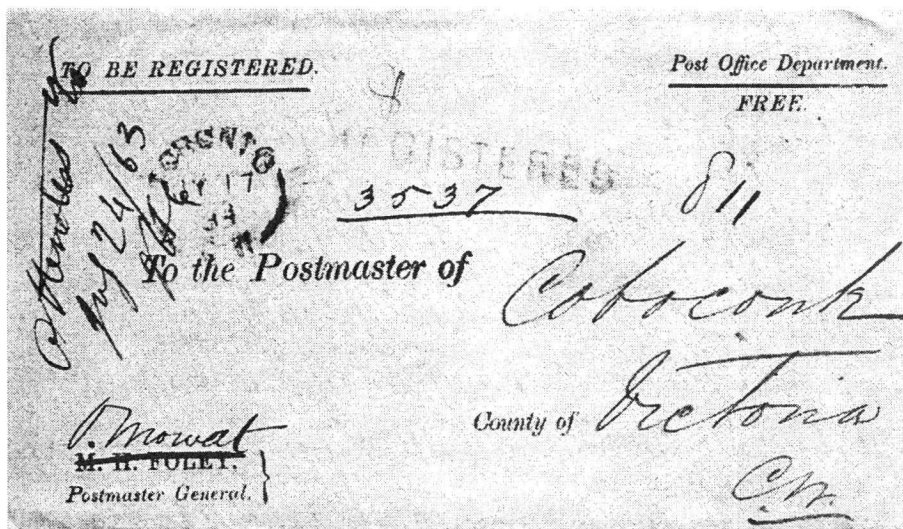 TO BE REGISTERED.
Post Office Department.
FREE.
TORONTO
17
REGISTERED
3537
811
To the Postmaster of
Coboconk
County of Victoria
C.W.
O. Mowat
M. H. FOLEY,
Postmaster General.
24/63